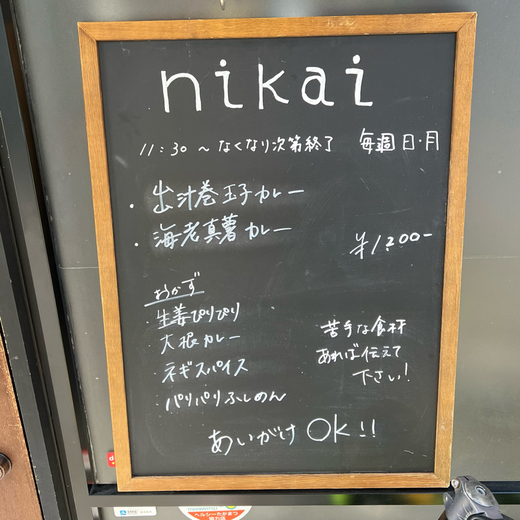 nikai
11:30 〜 なくなり次第終了 毎週日・月
・出汁巻玉子カレー
・海老真薯カレー
¥1,200-
おかず
・生姜ぴりぴり
・大根カレー
・ネギスパイス
・パリパリふしめん
苦手な食材
あれば伝えて
下さい!
あいがけ OK!!
ヘルシーたかまつ
協力店